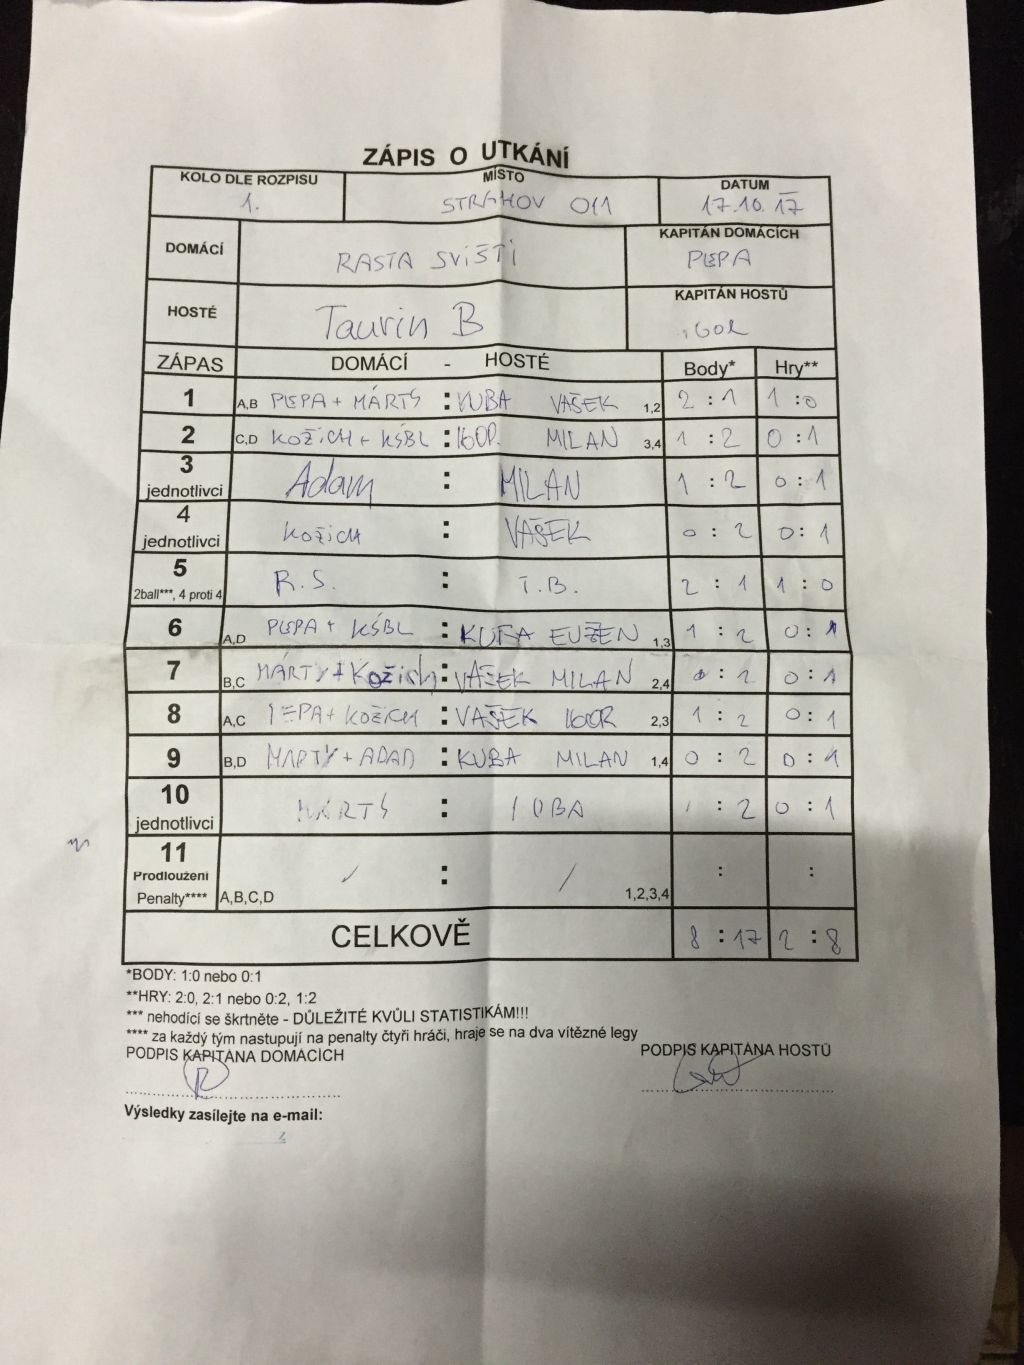 ZÁPIS O UTKÁNÍ
KOLO DLE ROZPISU
1.
MÍSTO
STRAHOV 011
DATUM
17.10.17
DOMÁCÍ
RASTA SVIŠTI
KAPITÁN DOMÁCÍCH
PEPA
HOSTÉ
Taurin B
KAPITÁN HOSTŮ
IGOR
ZÁPAS DOMÁCÍ - HOSTÉ Body* Hry**
1 A,B PEPA + MÁRTY : KUBA VAŠEK 1,2 2 : 1 1 : 0
2 C,D KOŽICH + KSBL : IGOR MILAN 3,4 1 : 2 0 : 1
3 jednotlivci Adam : MILAN 1 : 2 0 : 1
4 jednotlivci KOŽICH : VAŠEK 0 : 2 0 : 1
5 2ball***, 4 proti 4 R.S. : T.B. 2 : 1 1 : 0
6 A,D PEPA + KSBL : KUBA EUŽEN 1,3 1 : 2 0 : 1
7 B,C MÁRTY + KOžich : VAŠEK MILAN 2,4 : 2 0 : 1
8 A,C PEPA + KOŽICH : VAŠEK IGOR 2,3 1 : 2 0 : 1
9 B,D MARTY + ADAM : KUBA MILAN 1,4 0 : 2 0 : 1
10 jednotlivci MÁRTY : KUBA : 2 0 : 1
11 Prodloužení Penalty**** A,B,C,D / : / 1,2,3,4 : :
CELKOVĚ 8 : 17 2 : 8
*BODY: 1:0 nebo 0:1
**HRY: 2:0, 2:1 nebo 0:2, 1:2
*** nehodící se škrtněte - DŮLEŽITÉ KVŮLI STATISTIKÁM!!!
**** za každý tým nastupují na penalty čtyři hráči, hraje se na dva vítězné legy
PODPIS KAPITÁNA DOMÁCÍCH
PODPIS KAPITÁNA HOSTŮ
Výsledky zasílejte na e-mail: